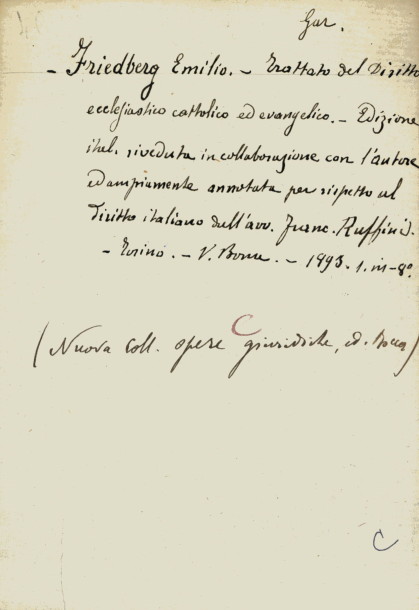 Gur.
- Friedberg Emilio. - Trattato del Diritto
ecclesiastico cattolico ed evangelico. - Edizione
ital. riveduta in collaborazione con l'autore
ed ampiamente annotata per rispetto al
diritto italiano dall'avv. Franc. Ruffini.
- Torino. - 1893. 1. in-8°.
(Nuova coll. opere giuridiche, ed. Bocca)
C
C